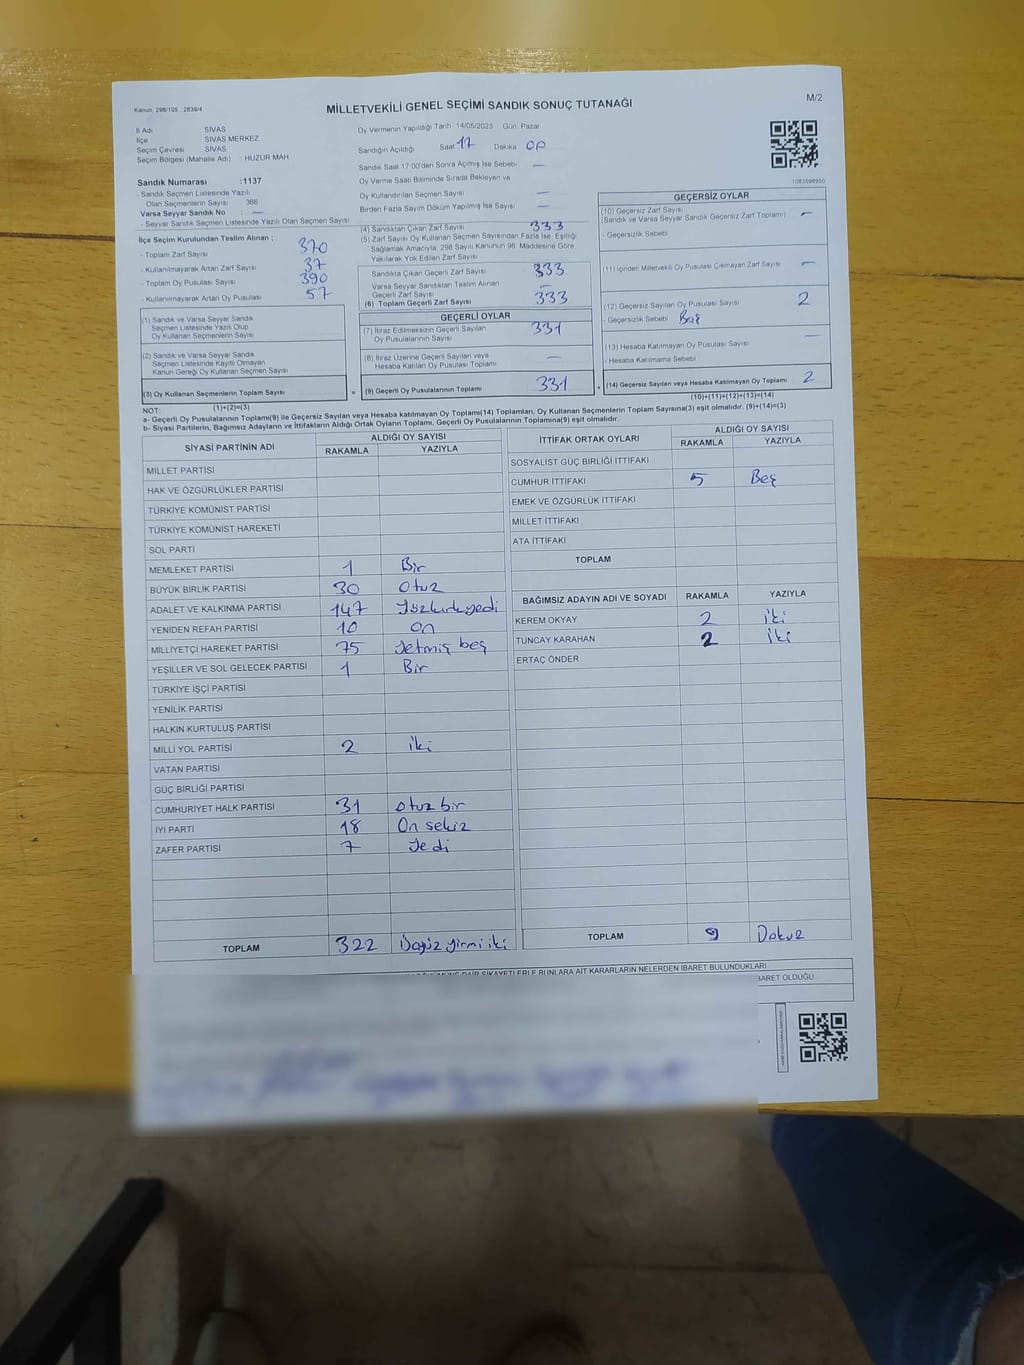 Kanun: 298/105 , 2839/4
MİLLETVEKİLİ GENEL SEÇİMİ SANDIK SONUÇ TUTANAĞI
M/2
İl Adı SİVAS
İlçe SİVAS MERKEZ
Seçim Çevresi SİVAS
Seçim Bölgesi (Mahalle Adı) : HUZUR MAH
Sandık Numarası :1137
- Sandık Seçmen Listesinde Yazılı
Olan Seçmenlerin Sayısı : 366
Varsa Seyyar Sandık No : —
- Seyyar Sandık Seçmen Listesinde Yazılı Olan Seçmen Sayısı
İlçe Seçim Kurulundan Teslim Alınan ;
- Toplam Zarf Sayısı 370
- Kullanılmayarak Artan Zarf Sayısı 37
- Toplam Oy Pusulası Sayısı 390
- Kullanılmayarak Artan Oy Pusulası 57
(1) Sandık ve Varsa Seyyar Sandık
Seçmen Listesinde Yazılı Olup
Oy Kullanan Seçmenlerin Sayısı
(2) Sandık ve Varsa Seyyar Sandık
Seçmen Listesinde Kayıtlı Olmayan
Kanun Gereği Oy Kullanan Seçmen Sayısı
(3) Oy Kullanan Seçmenlerin Toplam Sayısı
(1)+(2)=(3)
Oy Vermenin Yapıldığı Tarih :14/05/2023 Gün: Pazar
Sandığın Açıldığı Saat 17 Dakika 00
Sandık Saat 17:00'den Sonra Açılmış İse Sebebi —
Oy Verme Saati Bitiminde Sırada Bekleyen ve
Oy Kullandırılan Seçmen Sayısı —
Birden Fazla Sayım Döküm Yapılmış İse Sayısı —
(4) Sandıktan Çıkan Zarf Sayısı 333
(5) Zarf Sayısı Oy Kullanan Seçmen Sayısından Fazla İse, Eşitliği
Sağlamak Amacıyla, 298 Sayılı Kanunun 98. Maddesine Göre
Yakılarak Yok Edilen Zarf Sayısı
Sandıkta Çıkan Geçerli Zarf Sayısı 333
Varsa Seyyar Sandıktan Teslim Alınan
Geçerli Zarf Sayısı —
(6) Toplam Geçerli Zarf Sayısı 333
GEÇERLİ OYLAR
(7) İtiraz Edilmeksizin Geçerli Sayılan
Oy Pusulalarının Sayısı 331
(8) İtiraz Üzerine Geçerli Sayılan veya
Hesaba Katılan Oy Pusulası Toplamı —
= (9) Geçerli Oy Pusulalarının Toplamı 331
1083598950
GEÇERSİZ OYLAR
(10) Geçersiz Zarf Sayısı
(Sandık ve Varsa Seyyar Sandık Geçersiz Zarf Toplamı) —
- Geçersizlik Sebebi
(11) İçinden Milletvekili Oy Pusulası Çıkmayan Zarf Sayısı —
(12) Geçersiz Sayılan Oy Pusulası Sayısı 2
- Geçersizlik Sebebi Boş
(13) Hesaba Katılmayan Oy Pusulası Sayısı —
- Hesaba Katılmama Sebebi
+ (14) Geçersiz Sayılan veya Hesaba Katılmayan Oy Toplamı 2
(10)+(11)+(12)+(13)=(14)
NOT:
a- Geçerli Oy Pusulalarının Toplamı(9) ile Geçersiz Sayılan veya Hesaba katılmayan Oy Toplamı(14) Toplamları, Oy Kullanan Seçmenlerin Toplam Sayısına(3) eşit olmalıdır. (9)+(14)=(3)
b- Siyasi Partilerin, Bağımsız Adayların ve İttifakların Aldığı Ortak Oyların Toplamı, Geçerli Oy Pusulalarının Toplamına(9) eşit olmalıdır.
SİYASİ PARTİNİN ADI ALDIĞI OY SAYISI
RAKAMLA YAZIYLA
MİLLET PARTİSİ
HAK VE ÖZGÜRLÜKLER PARTİSİ
TÜRKİYE KOMÜNİST PARTİSİ
TÜRKİYE KOMÜNİST HAREKETİ
SOL PARTİ
MEMLEKET PARTİSİ 1 Bir
BÜYÜK BİRLİK PARTİSİ 30 Otuz
ADALET VE KALKINMA PARTİSİ 147 Yüzkırkyedi
YENİDEN REFAH PARTİSİ 10 On
MİLLİYETÇİ HAREKET PARTİSİ 75 Yetmiş beş
YEŞİLLER VE SOL GELECEK PARTİSİ 1 Bir
TÜRKİYE İŞÇİ PARTİSİ
YENİLİK PARTİSİ
HALKIN KURTULUŞ PARTİSİ
MİLLİ YOL PARTİSİ 2 iki
VATAN PARTİSİ
GÜÇ BİRLİĞİ PARTİSİ
CUMHURİYET HALK PARTİSİ 31 otuz bir
İYİ PARTİ 18 On sekiz
ZAFER PARTİSİ 7 Yedi
TOPLAM 322 Üçyüz yirmi iki
İTTİFAK ORTAK OYLARI ALDIĞI OY SAYISI
RAKAMLA YAZIYLA
SOSYALİST GÜÇ BİRLİĞİ İTTİFAKI
CUMHUR İTTİFAKI 5 Beş
EMEK VE ÖZGÜRLÜK İTTİFAKI
MİLLET İTTİFAKI
ATA İTTİFAKI
TOPLAM
BAĞIMSIZ ADAYIN ADI VE SOYADI RAKAMLA YAZIYLA
KEREM OKYAY 2 iki
TUNCAY KARAHAN 2 iki
ERTAÇ ÖNDER
TOPLAM 9 Dokuz
DAİR ŞİKAYETLERLE BUNLARA AİT KARARLARIN NELERDEN İBARET BULUNDUKLARI
İBARET OLDUĞU